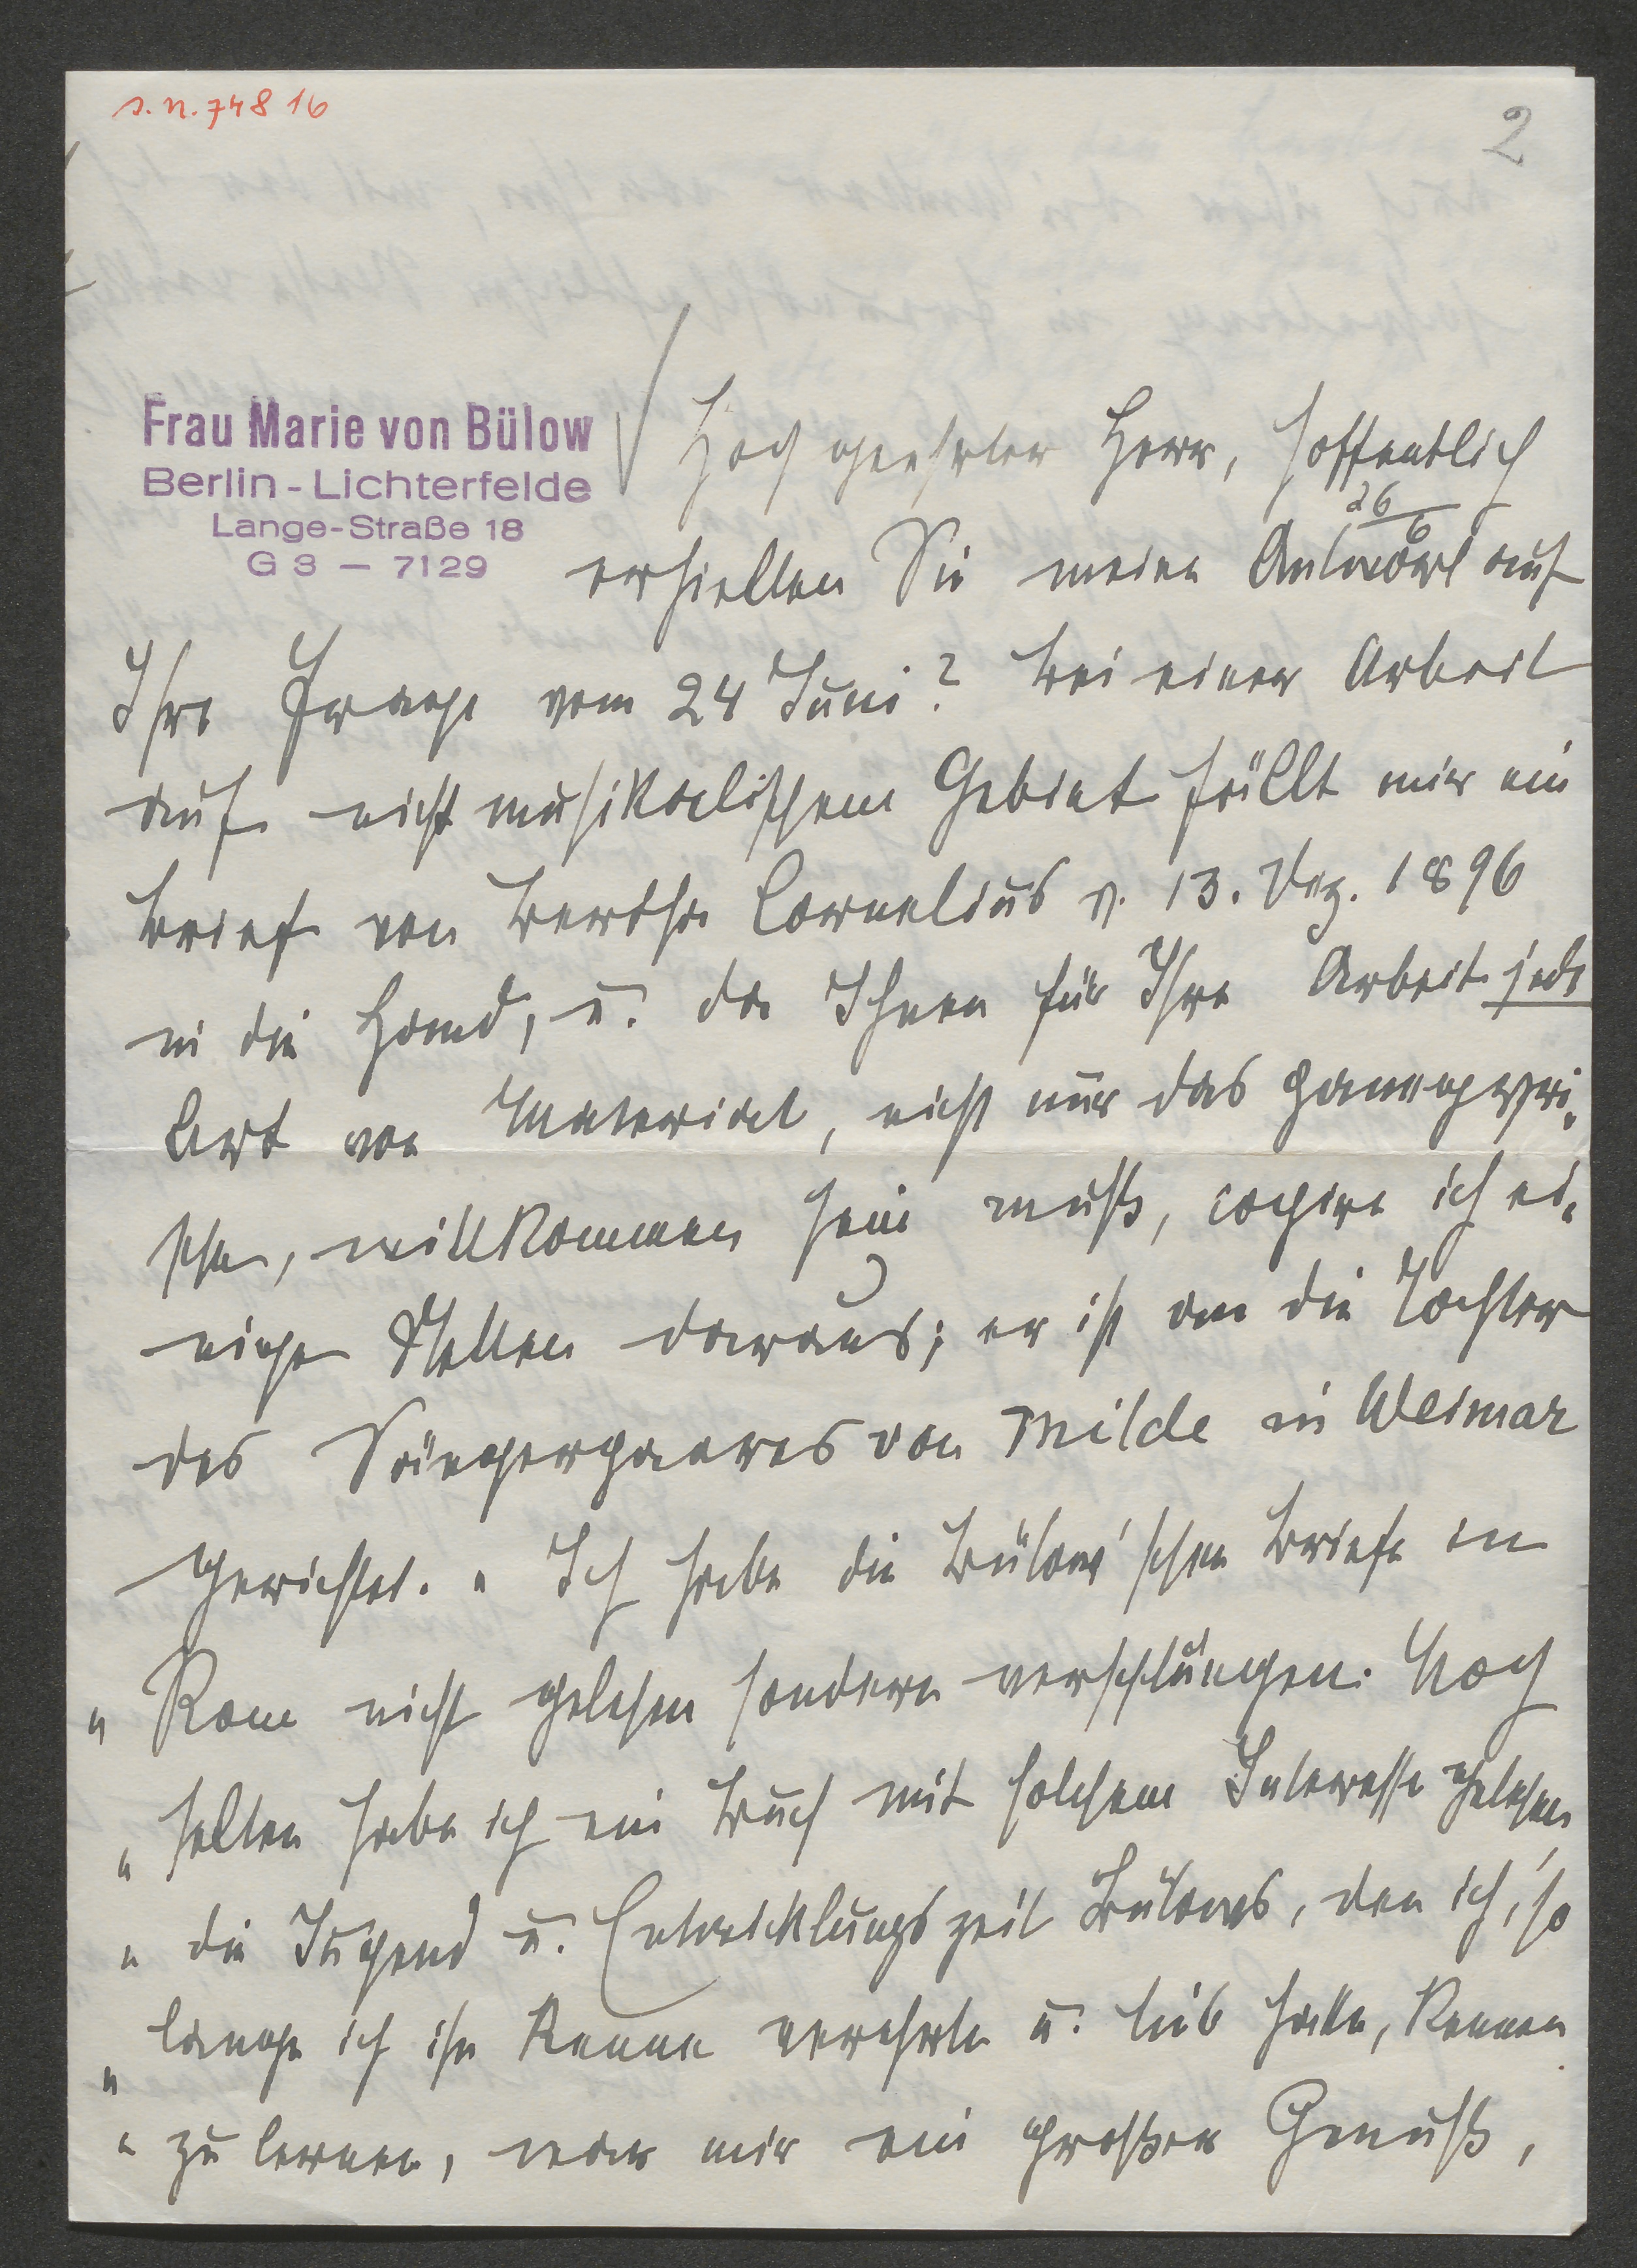 s. n. 748 16
2
Frau Marie von Bülow
Berlin - Lichterfelde
Lange-Straße 18
G 3 — 7129
Hochgeehrter Herr, hoffentlich
26/6
erhielten Sie meine Antwort auf
Ihre Frage vom 24 Juni? Bei einer Arbeit
auf nicht musikalischem Gebiet fällt mir ein
Brief von Bertha Cornelius v. 13. Dez. 1896
in die Hand, u. da Ihnen für Ihre Arbeit jede
Art von Material, nicht nur das
willkommen sein muß, copire ich ei„
nige Stellen daraus; er ist an die Tochter
des Sängerpaares von Milde in Weimar
gerichtet. „Ich habe die Bülow'schen Briefe in
„Rom nicht gelesen sondern verschlungen. Noch
„selten habe ich ein Buch mit solchem Interesse gelesen,
„die Jugend u. Entwicklungszeit Bülows, den ich, so
„lange ich ihn kenne verehrte u. lieb hatte, kennen
„zu lernen, war mir ein großer Genuß,